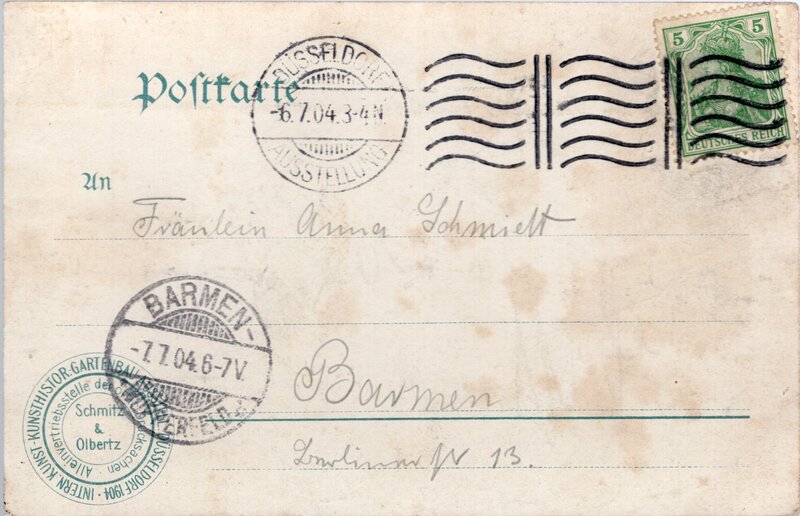 Postkarte
DÜSSELDORF
-6.7.04.3-4N.
AUSSTELLUNG
5 5
DEUTSCHES REICH
An
Fräulein Anna Schmidt
BARMEN-
-7.7.04.6-7V.
INTERN. KUNST- KUNSTHISTOR. GARTENBAU DÜSSELDORF 1904
Alleinvertriebsstelle der
Schmitz
&
Olbertz
Barmen
Berliner str 13.